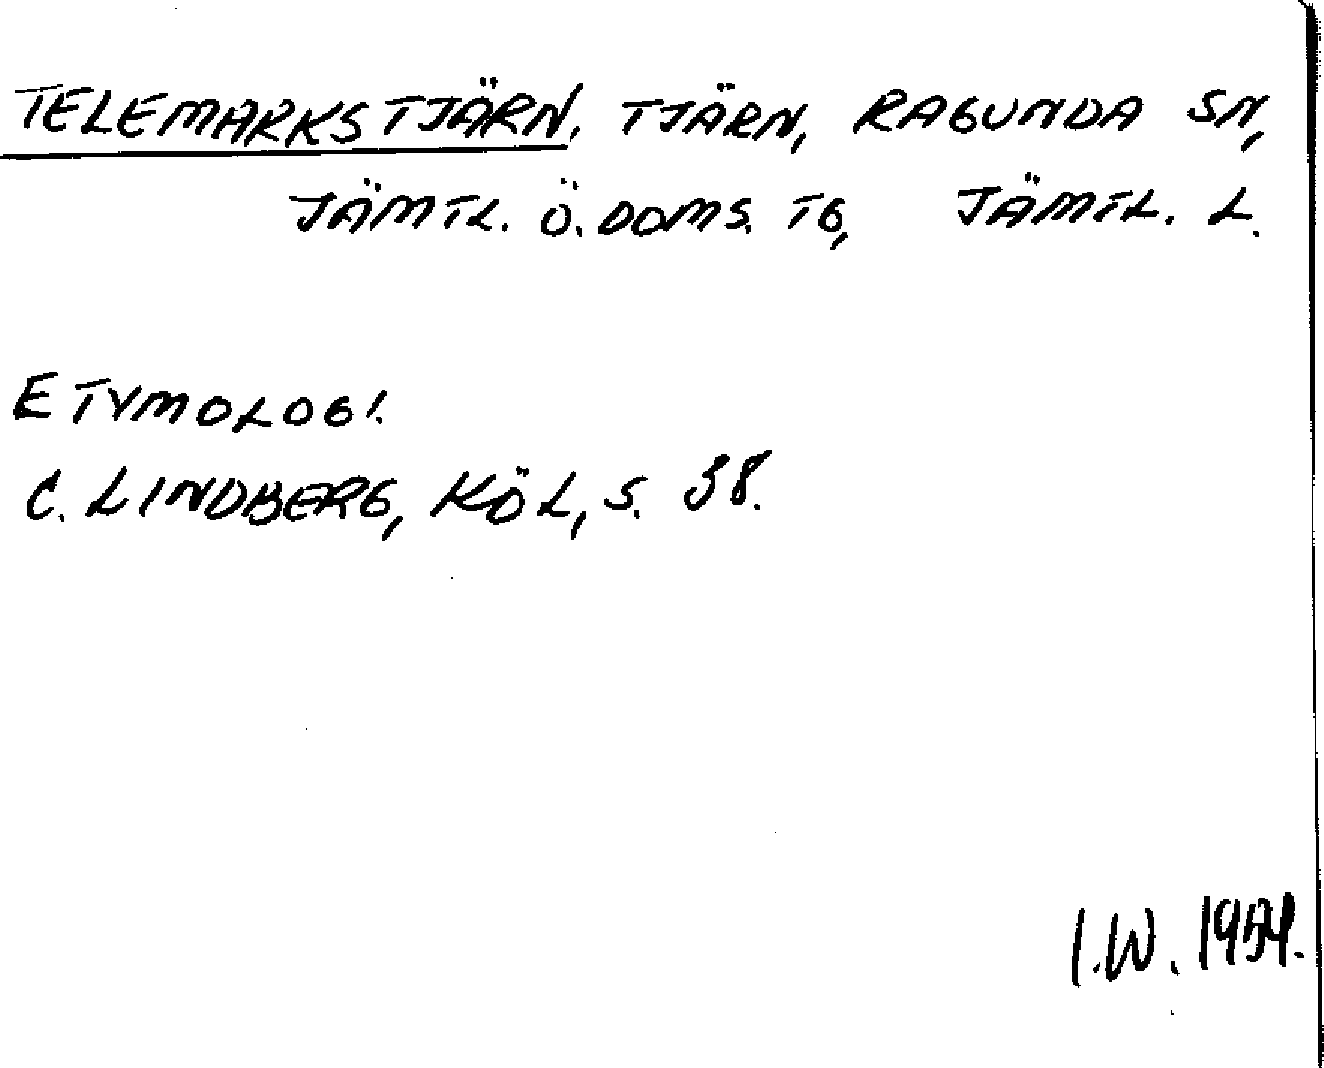 TELEMARKSTJÄRN, TJÄRN, RAGUNDA SN,
JÄMTL. Ö. DOMS. TG, JÄMTL. L.
ETYMOLOGI.
C. LINDBERG, KÖL, S. 38.
I.W. 1954.